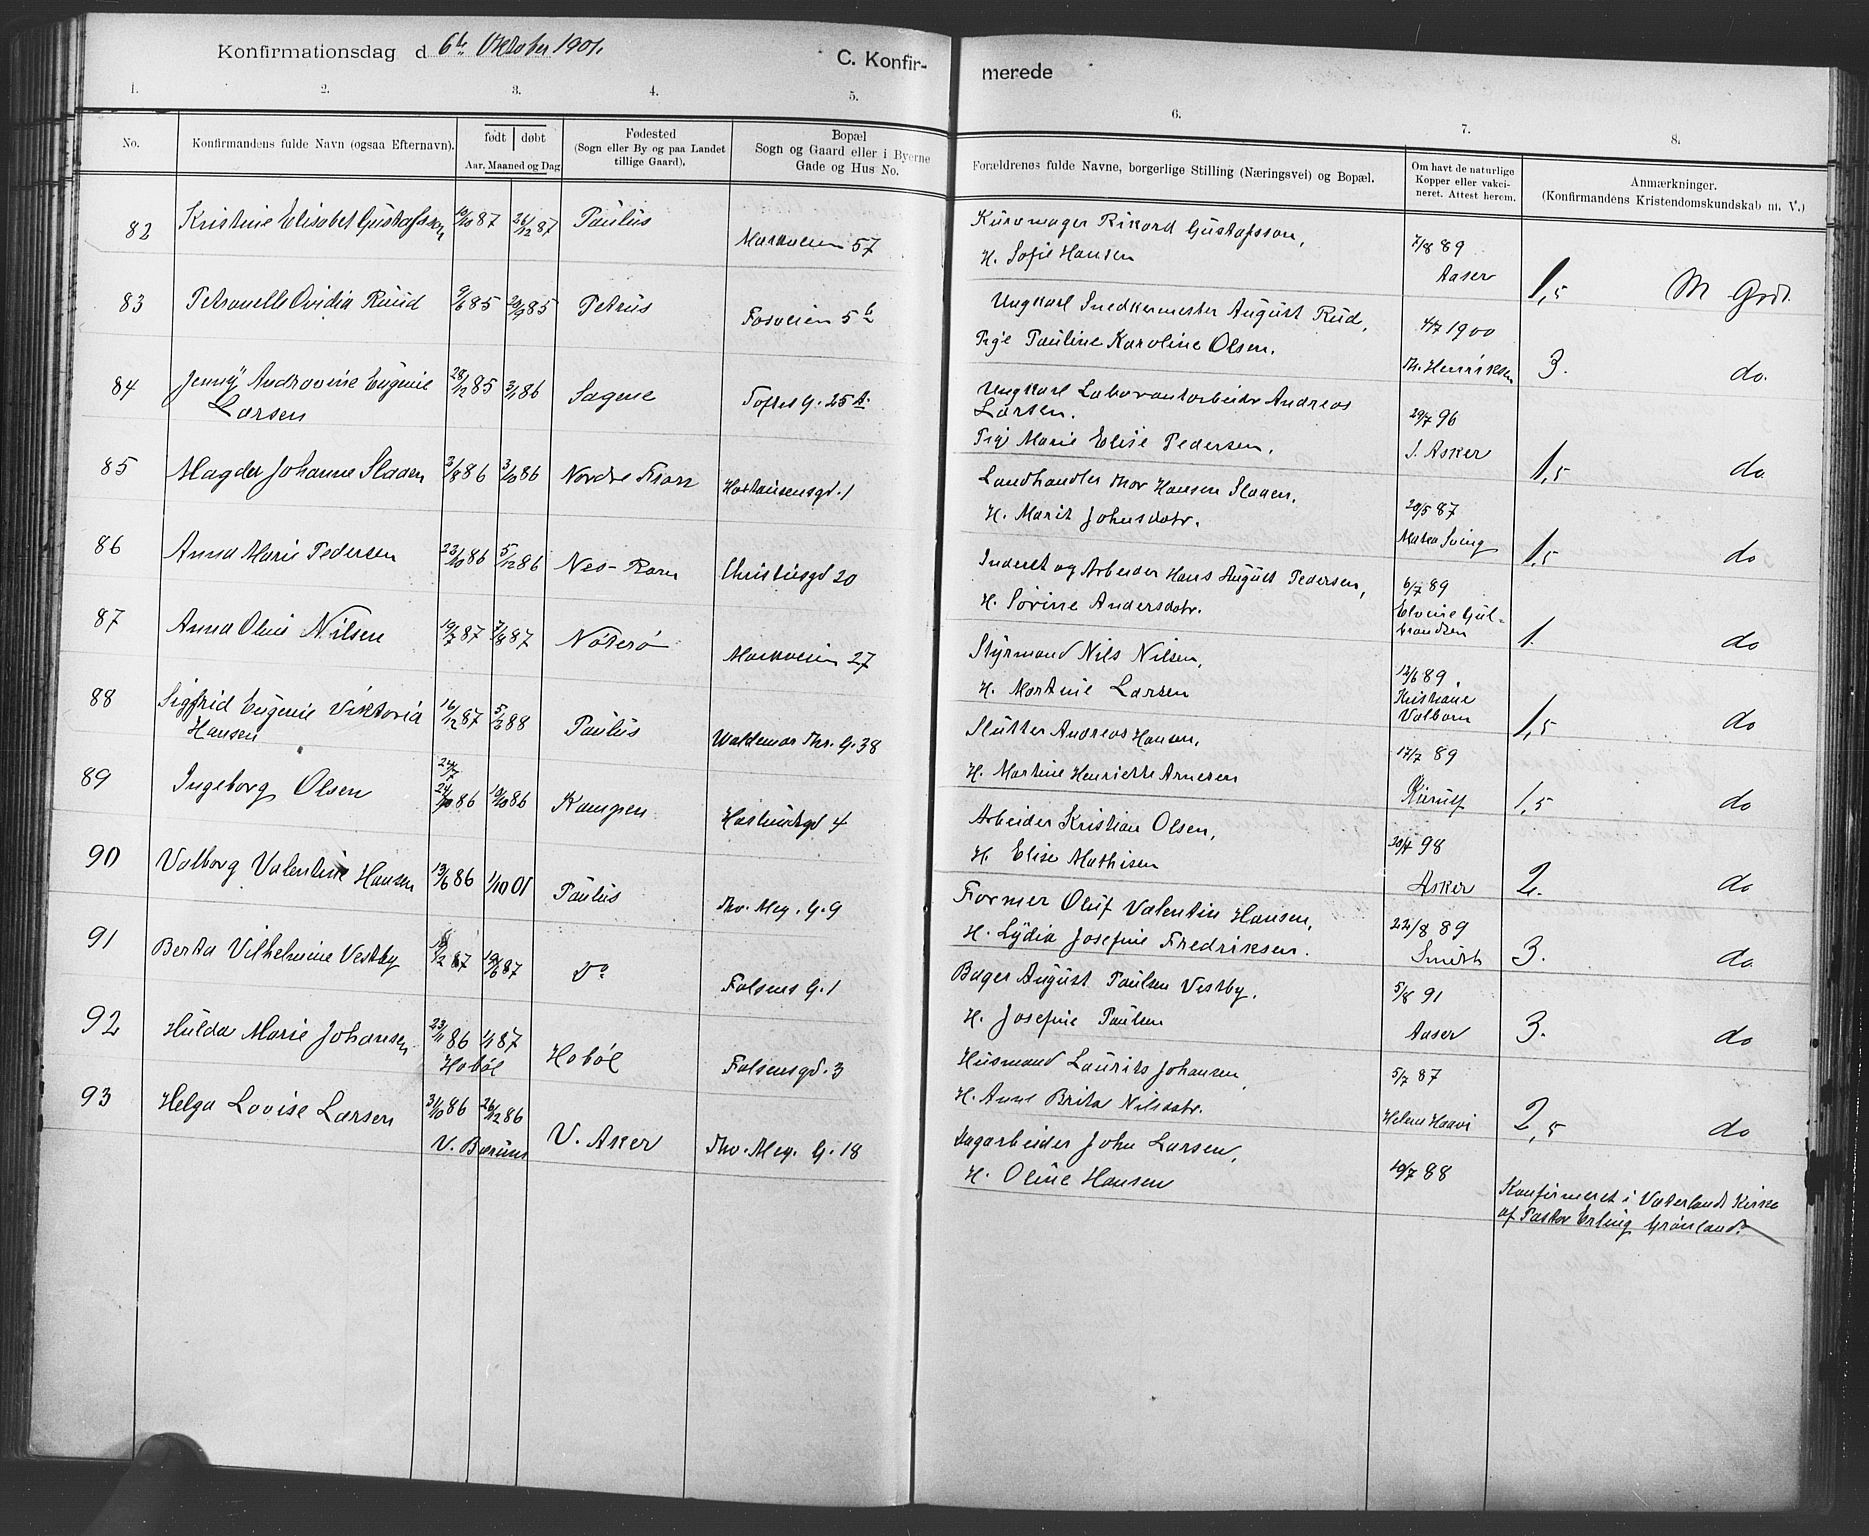 Konfirmationsdag d. 6te Oktober 1901.
C. Konfir-
merede
1. 2. 3. 4. 5. 6. 7. 8.
No.
Konfirmandens fulde Navn (ogsaa Efternavn).
født døbt
Aar, Maaned og Dag
Fødested
(Sogn eller By og paa Landet
tillige Gaard).
Bopæl
Sogn og Gaard eller i Byerne
Gade og Hus No.
Forældrenes fulde Navne, borgerlige Stilling (Næringsvei) og Bopæl.
Om havt de naturlige
Kopper eller vakci-
neret. Attest herom.
Anmærkninger.
(Konfirmandens Kristendomskundskab m. V.)
82 Kristine Elisabet Gustafsson 87 26/12 87 Paulus Markveien 57 Kurvmager Rikard Gustafsson, 7/8 89
H. Sofie Hansen Aaser 1,5 M Godt.
83 Petronelle Ovidia Ruud 9/6 85 20/9 85 Petrus Fosveien 5 b Ungkarl Snedkermester August Rud, 4/7 1900
Pige Pauline Karoline Olsen. Th. Henriksen 3. do.
84 Jenny Androvine Eugenie 28/12 85 3/1 86 Sagene Toftes G. 25 A. Ungkarl Laborantarbeider Andreas
Larsen Larsen. 29/7 96
Pige Marie Elise Pedersen. J. Asker 1,5 do
85 Magder Johanne Slaaen 3/8 86 3/10 86 Nordre Fron 1 Landhandler Thor Hansen Slaaen,
H. Marit Johnsdatr. 20/5 87
1,5 do
86 Anna Marie Pedersen 23/10 86 5/12 86 Nes-Rom. Christiesgd 20 Inderst og Arbeider Hans August Pedersen, 6/7 89
H. Sørine Andersdatr. Elvine Gul-
brandsen 1. do
87 Anna Oline Nilsen 19/7 87 7/8 87 Nøterø Markveien 27 Styrmand Nils Nilsen, 12/6 89.
H. Martine Larsen Kristiane
1,5 do
88 Sigfrid Eugenie Viktoria 16/12 87 5/3 88 Paulus Waldemar Thr. G. 38 Slutter Andreas Hansen, 17/7 89
Hansen H. Martine Henriette Arnesen Kierulf 1,5 do
89 Ingeborg Olsen 24/7
86 10/10 86 Kampen 4 Arbeider Kristian Olsen, 20/4 98
H. Elise Mathisen Asker 2. do
90 Valborg Valentine Hansen 13/6 86 1/10 01 Paulus Thv. Mey. G. 9 Former Oluf Valentin Hansen, 22/8 89
H. Lydia Josefine Fredriksen. Smith 3. do
91 Berta Vilhelmine Vestby 87 19/6 87 Do Falsens G. 1 Bager August Paulsen Vestby, 5/8 91
H. Josefine Paulsen Aaser 3. do
92 Hulda Marie Johansen 23/11 86 1/1 87 Hobøl Falsensgd. 3 Husmand Laurits Johansen, 5/7 87
Hobøl
H. Anne Brita Nilsdatr. Helene Haavi 2,5 do
93 Helga Lovise Larsen 31/10 86 26/12 86 V. Aker Thv. Mey. G. 18 Dagarbeider John Larsen, 10/7 88
V. Bærum
H. Oline Hansen Konfirmeret i Vaterlands Kirke
af Pastor Erling Grønland.